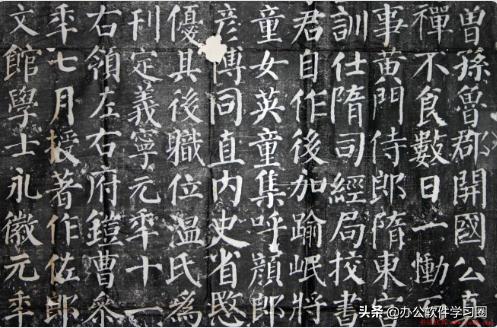 曾孫魯郡開國公真
禪不食數日一慟
事黃門侍郎隋東宮
訓仕隋司經局挍書
君自作後加踰岷將
童女英童集呼顏郎
彦博同直内史省愍
優其後職位温氏為
刊定義寧元年十一
右領左右府鎧曹叅
年七月授著作佐郎
文館學士永徽元年
头条 @办公软件学习圈